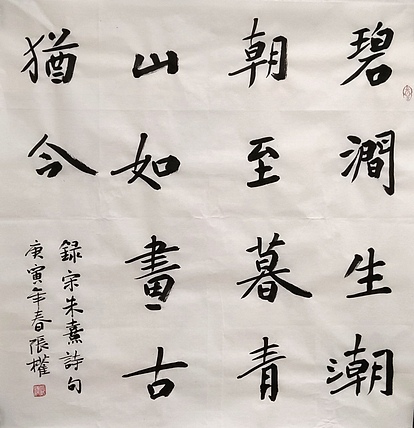 碧澗生潮
朝至暮青
山如畫古
猶今
録宗朱熹詩句
庚寅年春張權